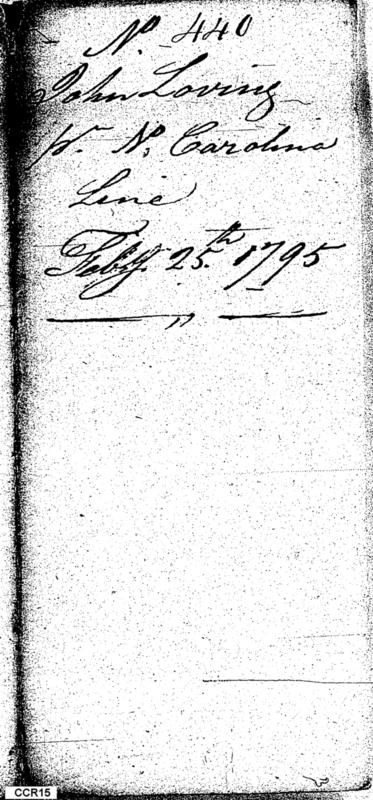 No 440
John Loving
pr. No. Carolina
Line
Feby. 25.th 1795
CCR15